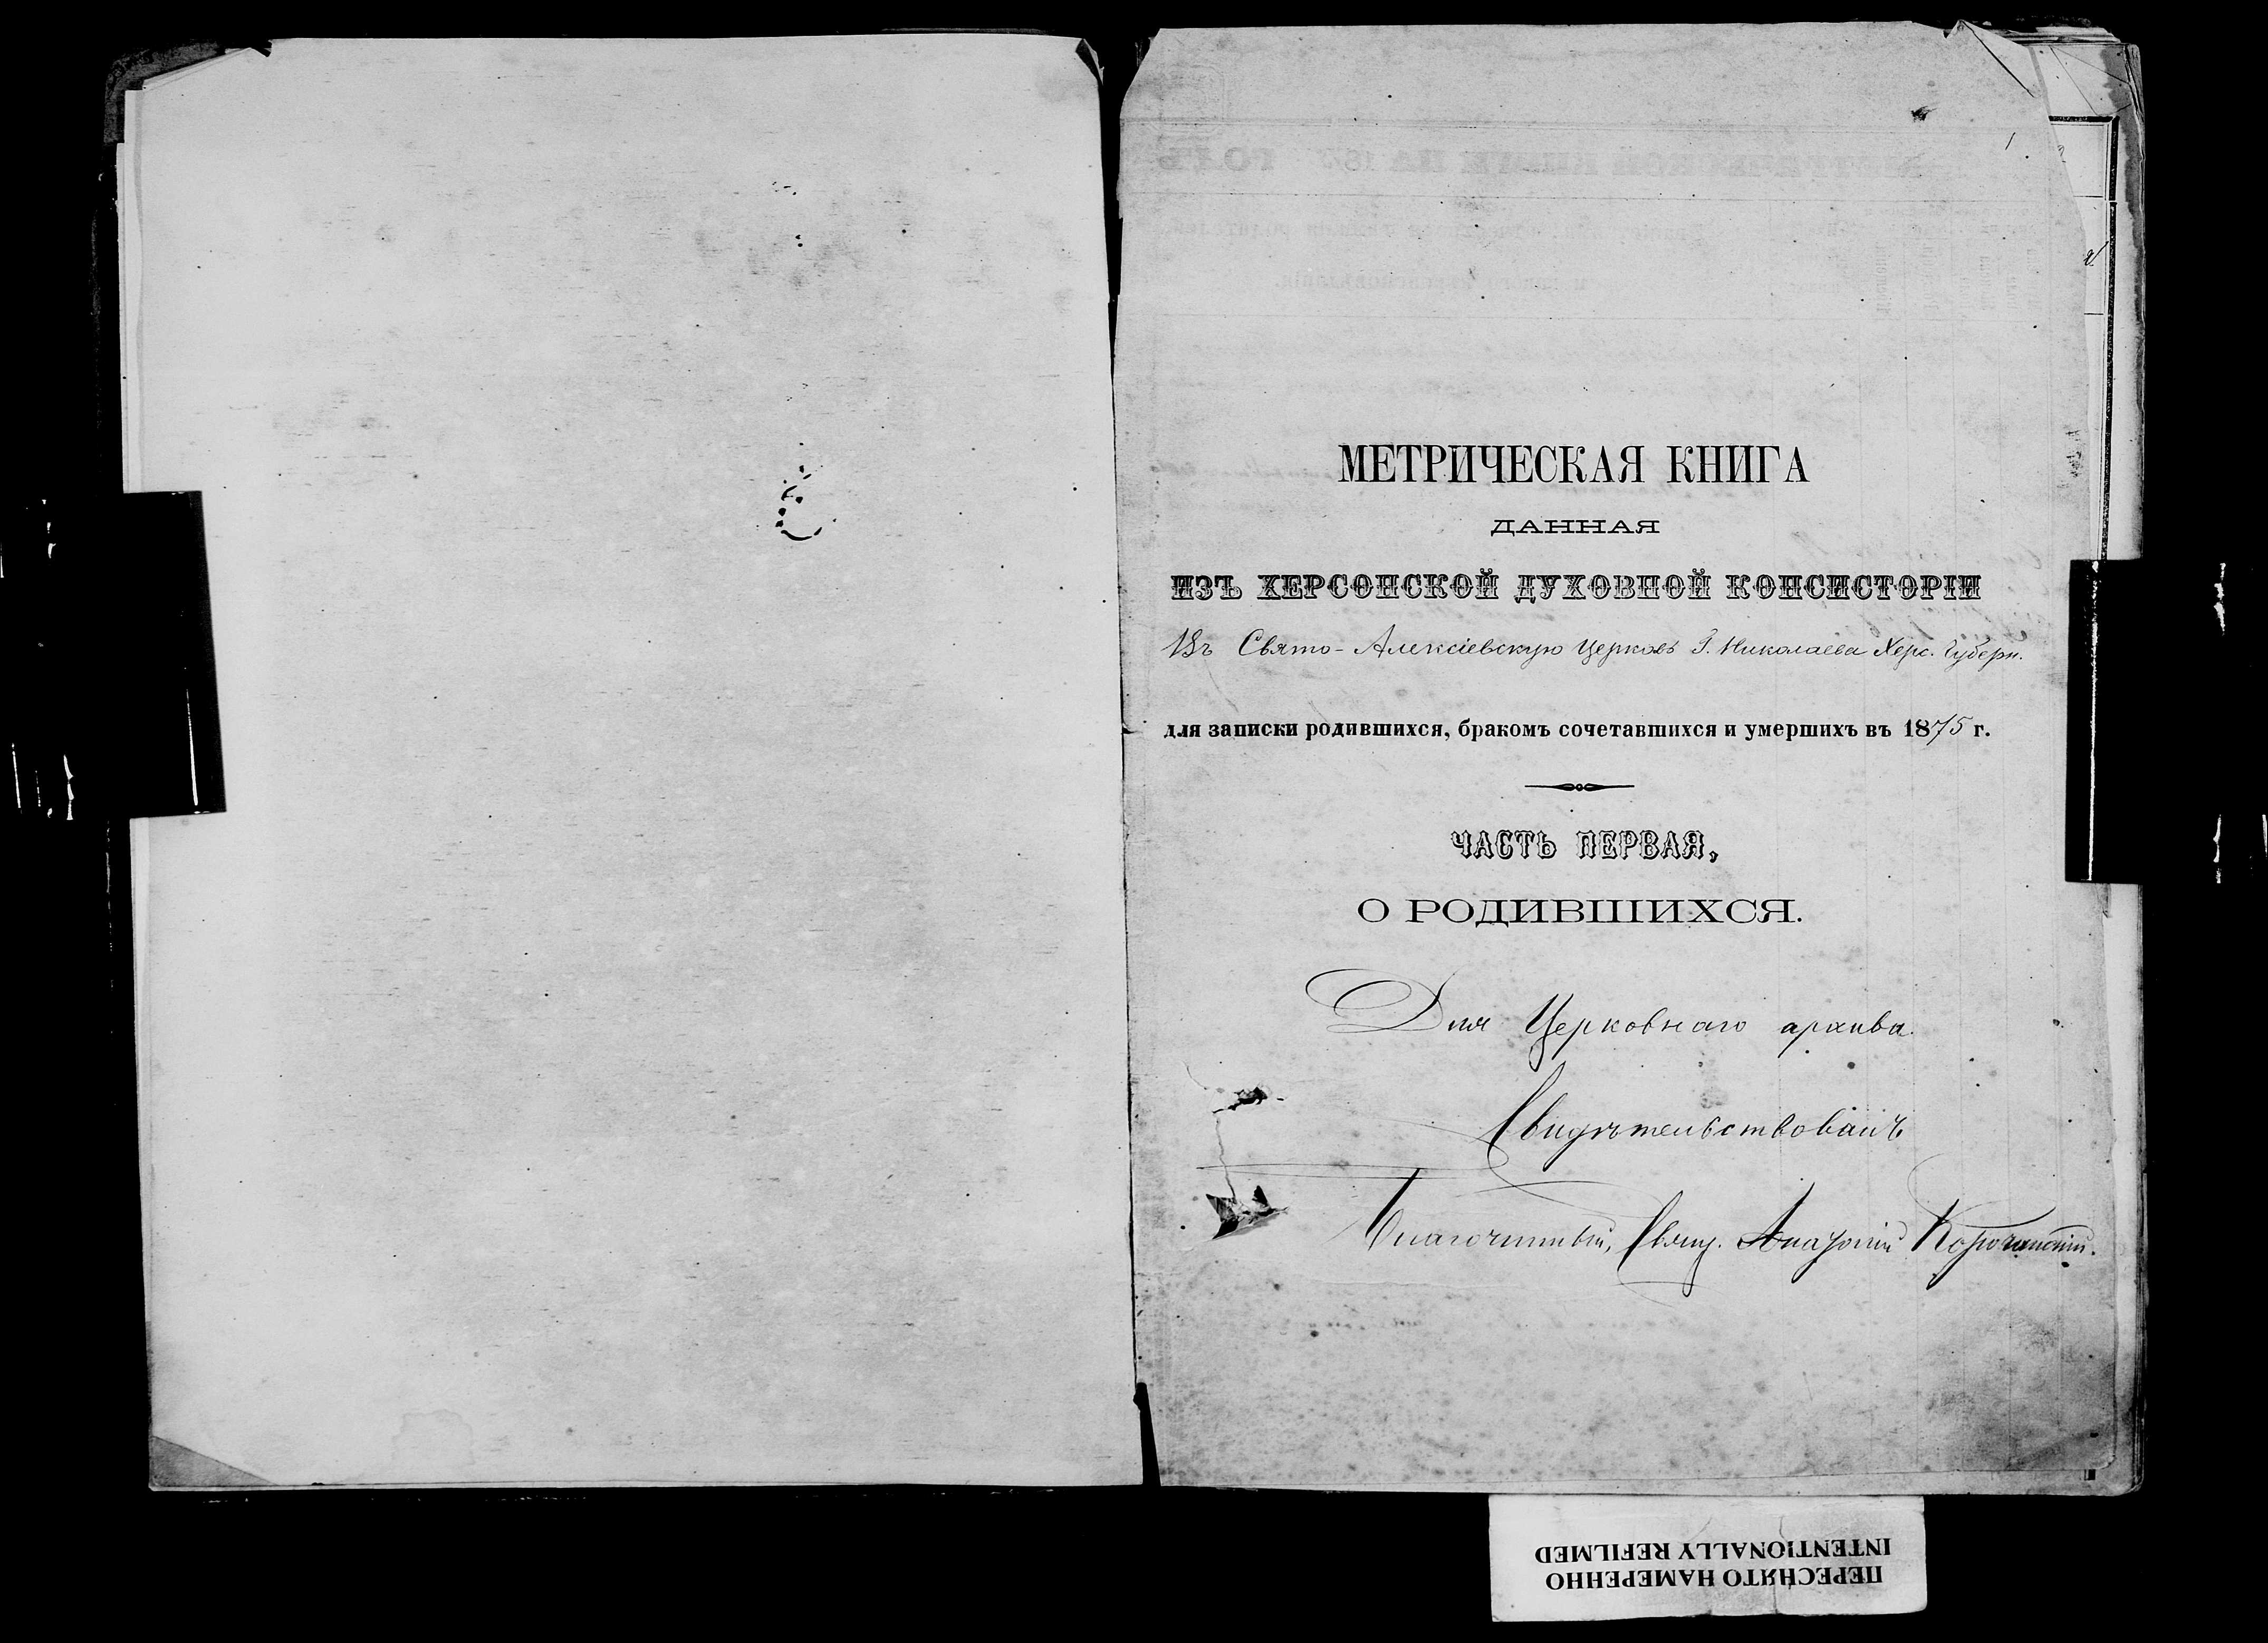 1
МЕТРИЧЕСКАЯ КНИГА
ДАННАЯ
ИЗЪ ХЕРСОНСКОЙ ДУХОВНОЙ КОНСИСТОРІИ
Въ Свято-Алексіевскую Церковь Г. Николаева Херс. Губерн.
для записки родившихся, бракомъ сочетавшихся и умершихъ въ 1875 г.
ЧАСТЬ ПЕРВАЯ,
О РОДИВШИХСЯ.
Для Церковнаго архива.
Свидѣтельствовалъ
Благочинный, Свящ.
ПЕРЕСНЯТО НАМЕРЕННО
INTENTIONALLY REFILMED